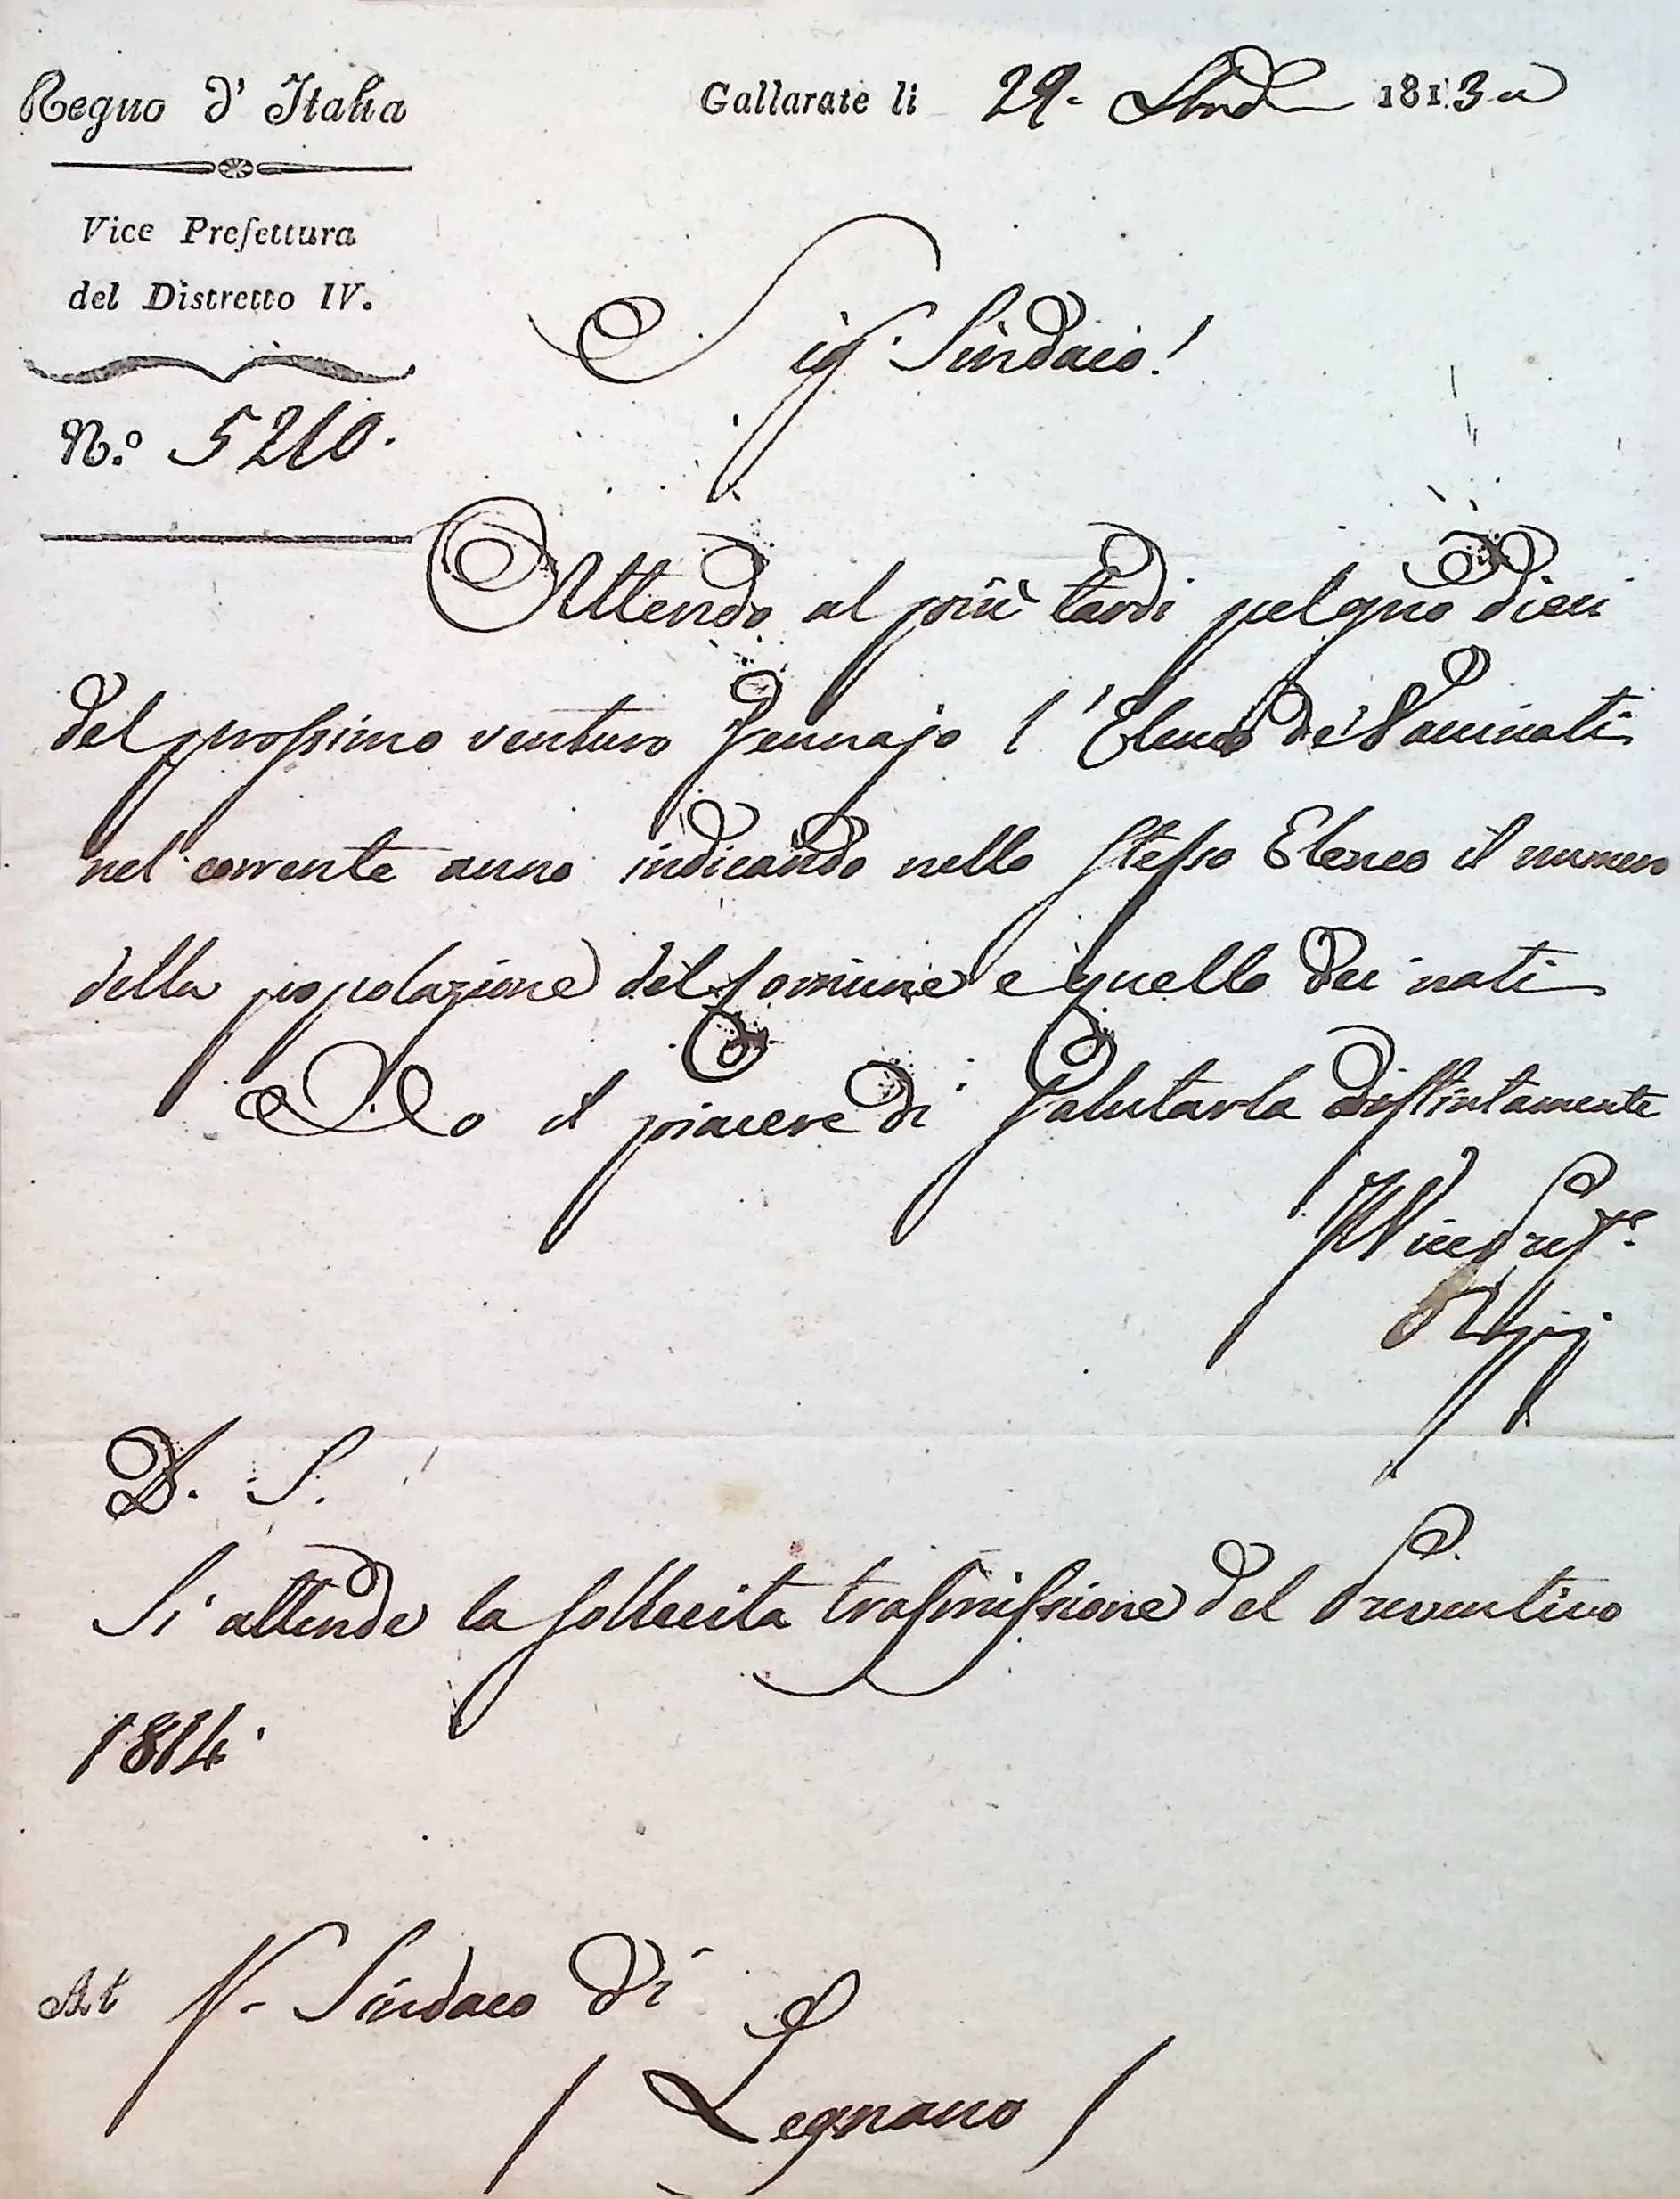 Regno d' Italia
Gallarate li 29. 1813
Vice Prefettura
del Distretto IV.
N.o 5210.
Sig. Sindaco!
Attendo al più tardi pel gno dieci
del prossimo venturo Gennajo l'Elenco de' Vaccinati
nel corrente anno indicando nello stesso Elenco il numero
della popolazione del Comune e quello dei nati
Ho il piacere di salutarla distintamente
Il Vice Pref.
P. S.
Si attende la sollecita trasmissione del Preventivo
1814.
Al Sindaco di
Legnano